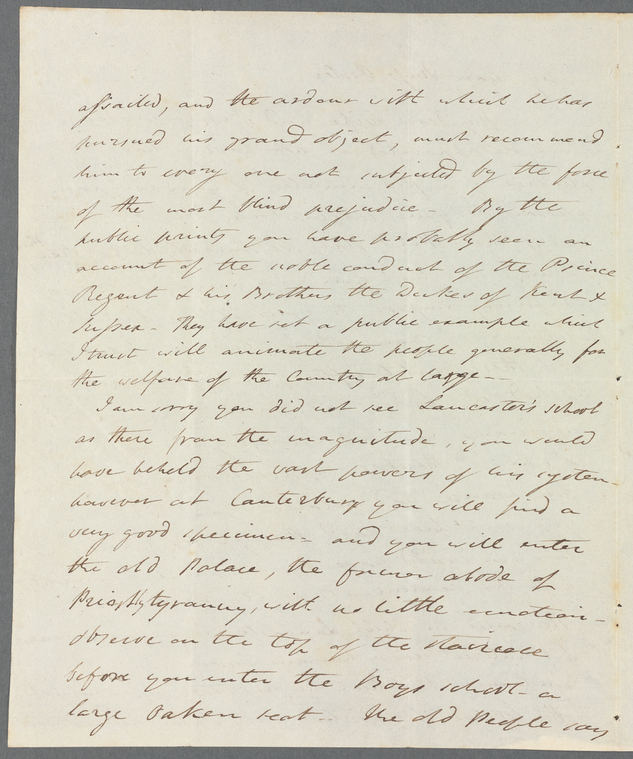 assailed, and the ardour with which he has
pursued his grand object, must recommend
him to every one not subjected by the force
of the most blind prejudice - By the
public prints you have probably seen an
account of the noble conduct of the Prince
Regent & his Brothers the Dukes of Kent &
Sussex - They have set a public example which
I trust will animate the people generally for
the welfare of the Country at large -
I am sorry you did not see Lancaster's school
as there from the magnitude, you would
have beheld the vast powers of his system -
however at Canterbury you will find a
very good specimen - and you will enter
the old Palace, the former abode of
Priestly tyranny, with no little emotion -
observe on the top of the staircase
before you enter the Boys school - a
large oaken seat - the old People say